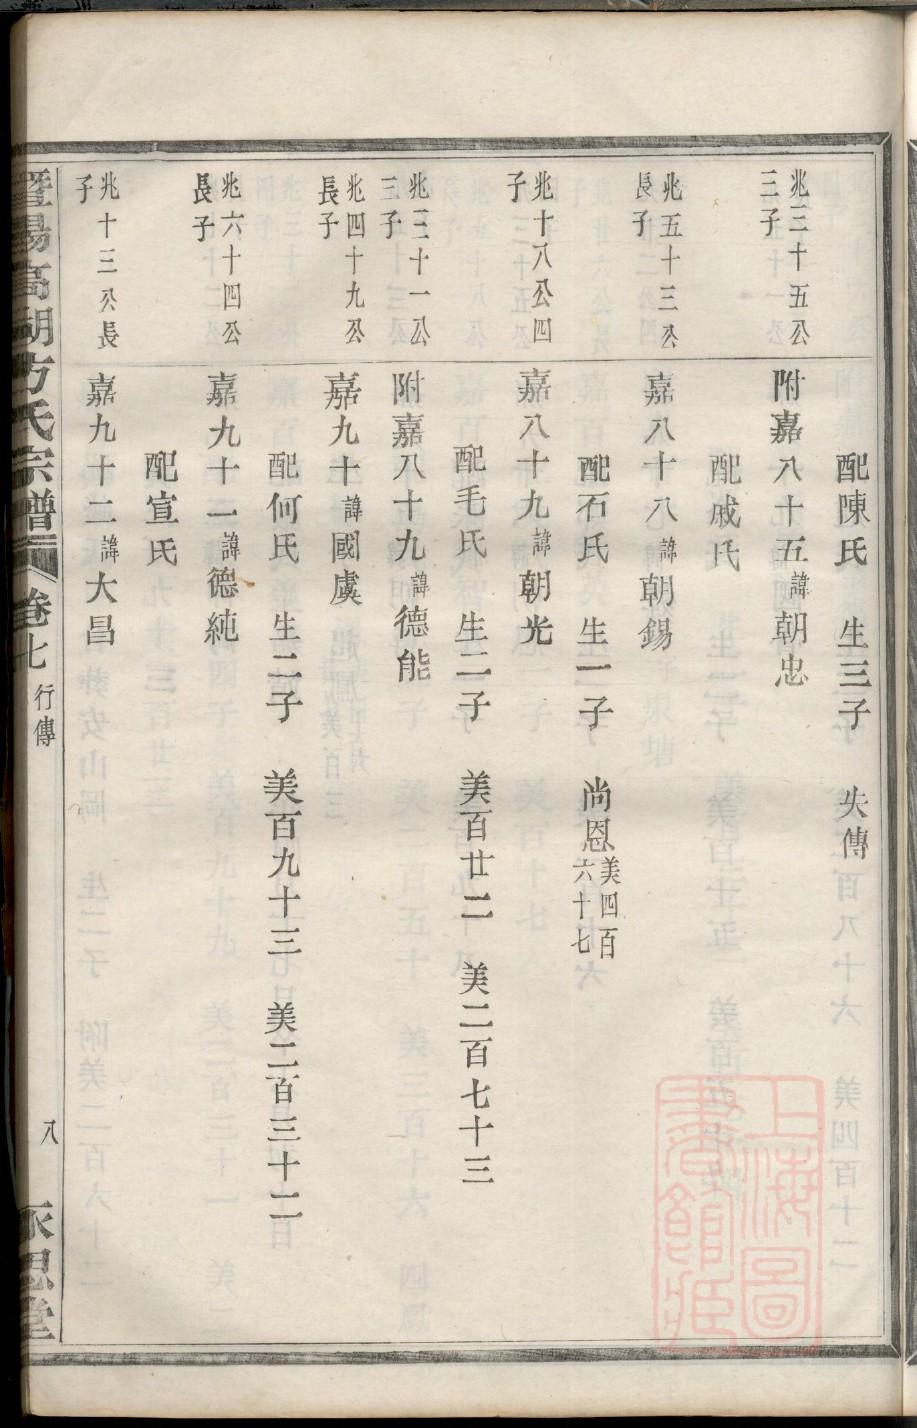 配陳氏 生三子 失傳
兆三十五公
三子
附嘉八十五諱朝忠
配戚氏
兆五十三公
長子
嘉八十八諱朝錫
配石氏 生一子 尚恩美四百六十七
兆十八公四
子
嘉八十九諱朝光
配毛氏 生二子 美百廿二 美二百七十三
兆三十一公
三子
附嘉八十九諱德能
兆四十九公
長子
嘉九十諱國虞
配何氏 生二子 美百九十三 美二百三十二
兆六十四公
長子
嘉九十一諱德純
配宣氏
兆十三公長
子
嘉九十二諱大昌
暨陽高湖方氏宗譜 卷七 行傳 八 永思堂
上海圖書館藏